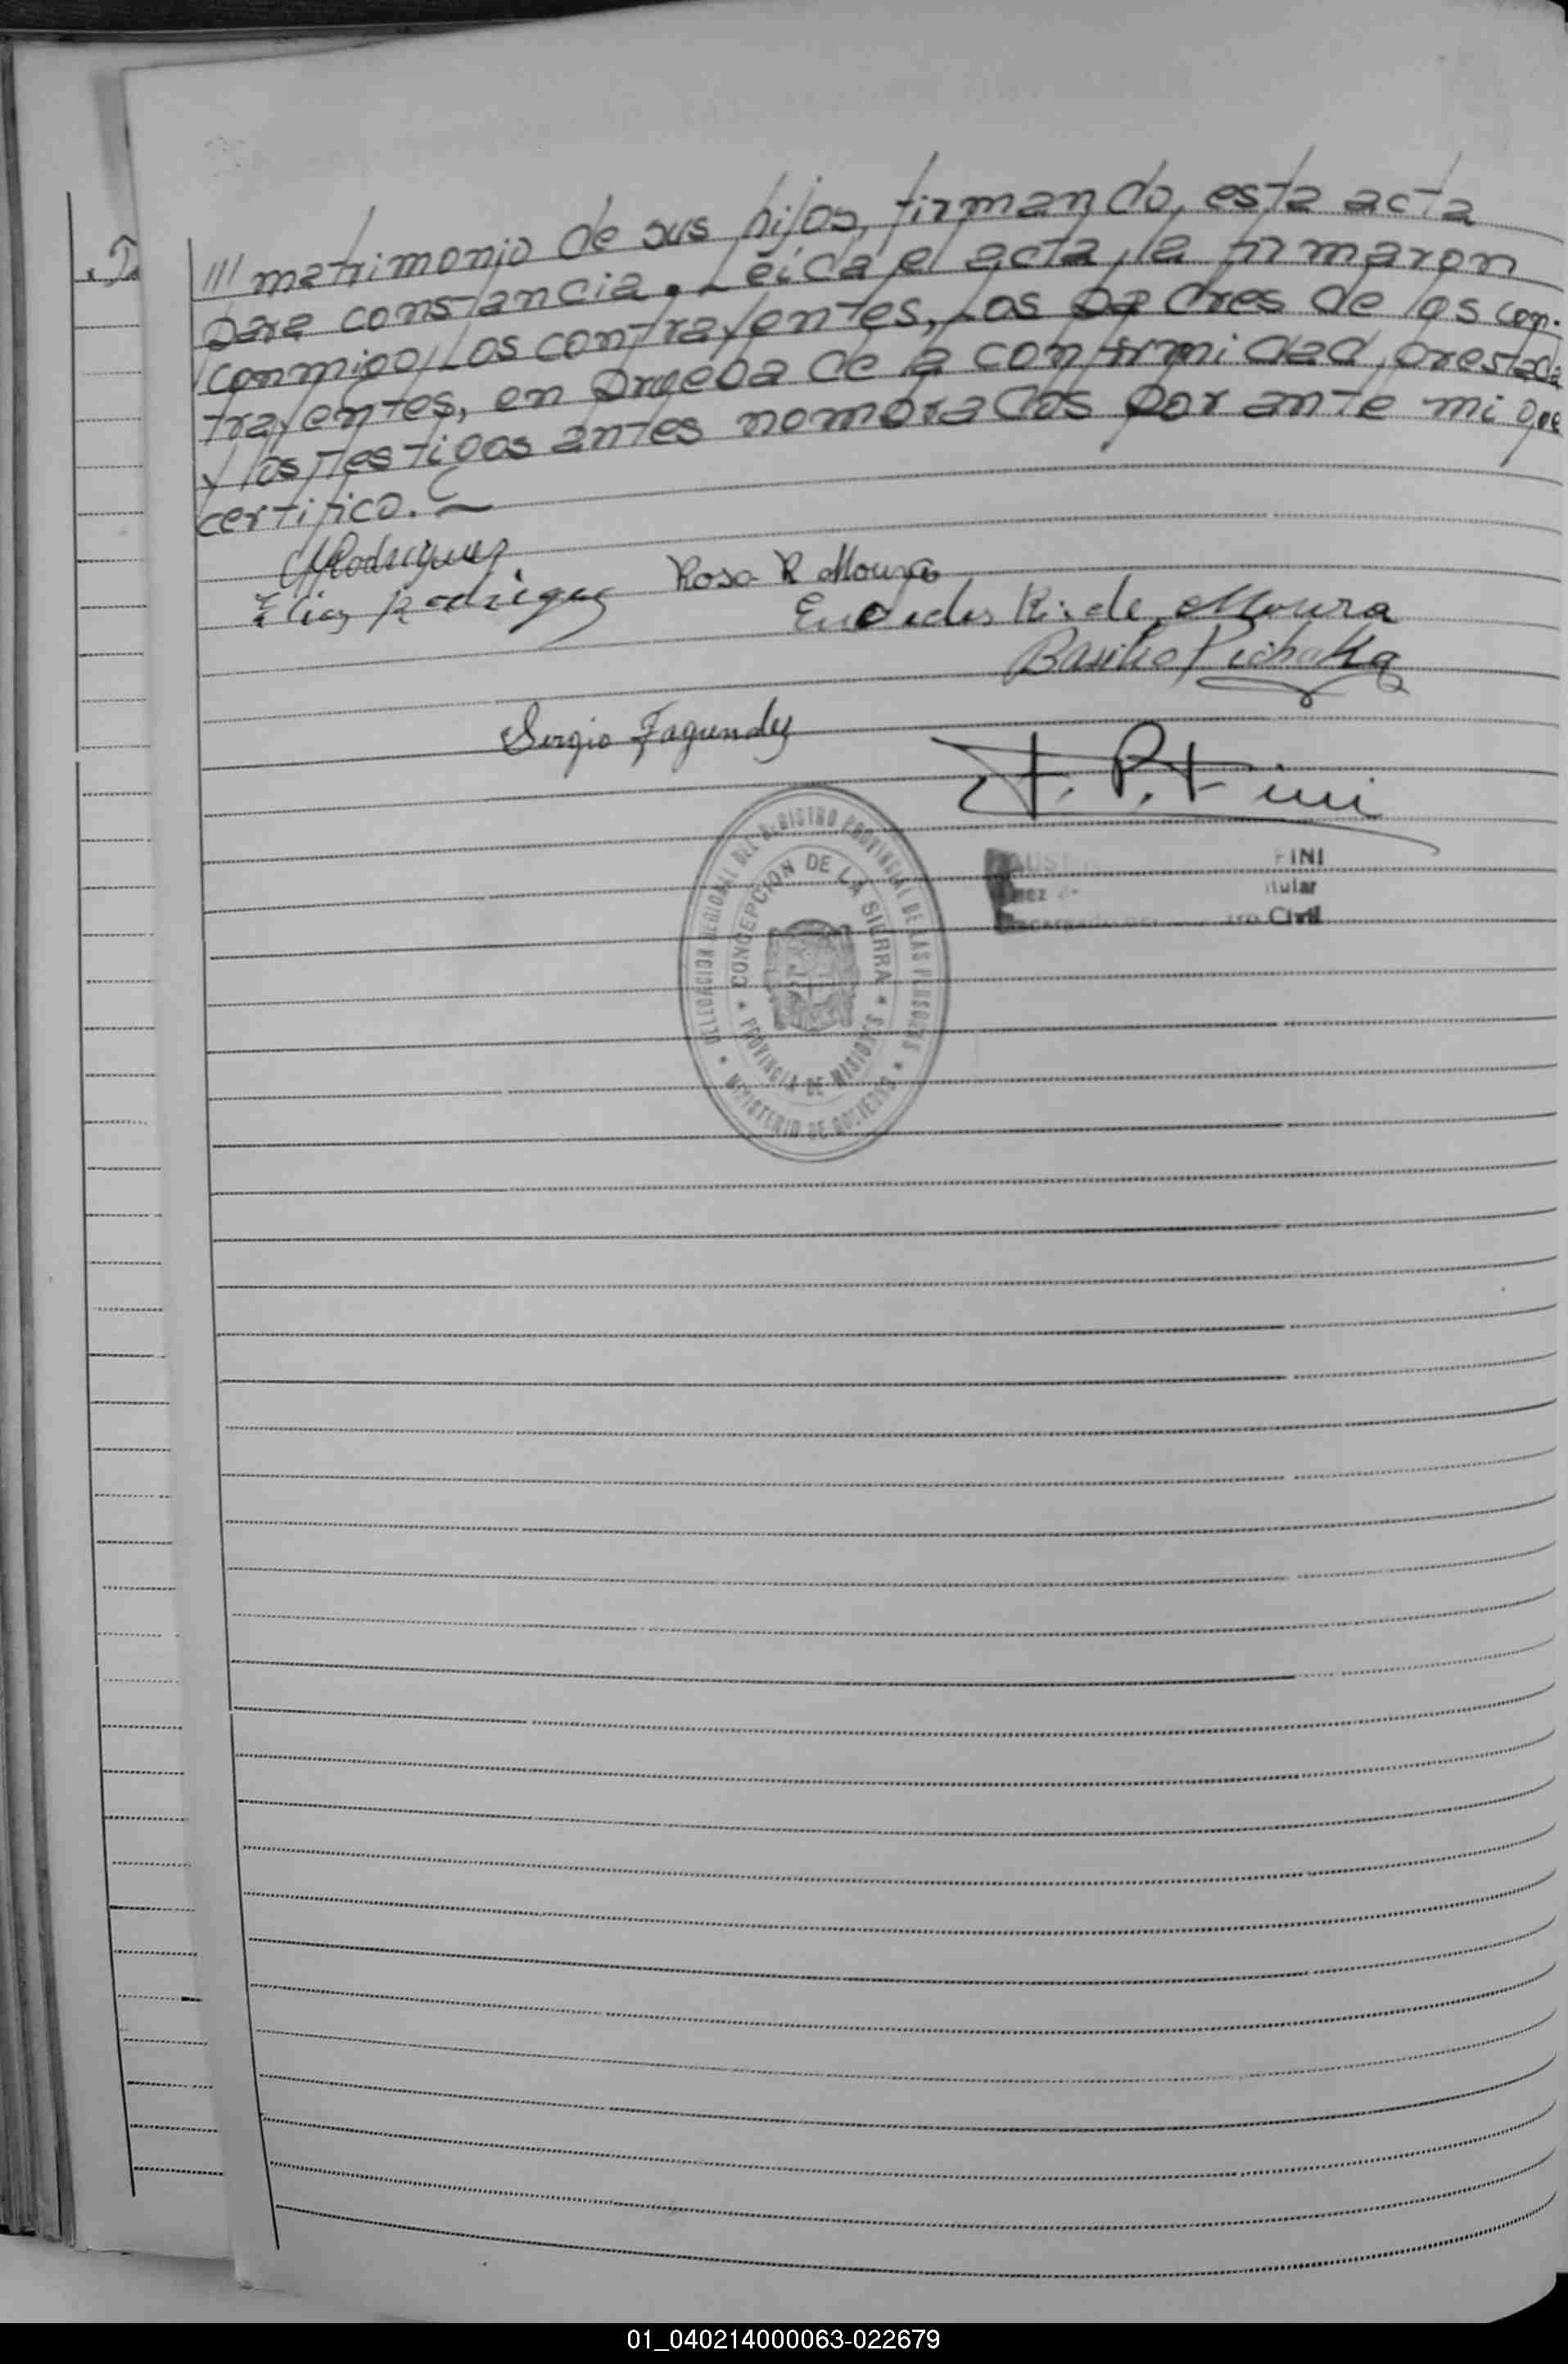 /// matrimonio de sus hijos, firmando, esta acta
para constancia. Leída el acta, la firmaron
conmigo, Los contrayentes, Los padres de los con-
trayentes, en prueba de la conformidad, prestada
y los testigos antes nombrados por ante mi que
certifico.
Rodriguez
Elias Rodriguez
Rosa R Moura
R. de Moura
Basilio
Sergio Fagundez
F. P. Fini
FINI
Civil
DELEGACION REGIONAL DEL REGISTRO PROVINCIAL DE LAS PERSONAS
CONCEPCION DE LA SIERRA
* PROVINCIA DE MISIONES *
* MINISTERIO DE GOBIERNO *
01_040214000063-022679